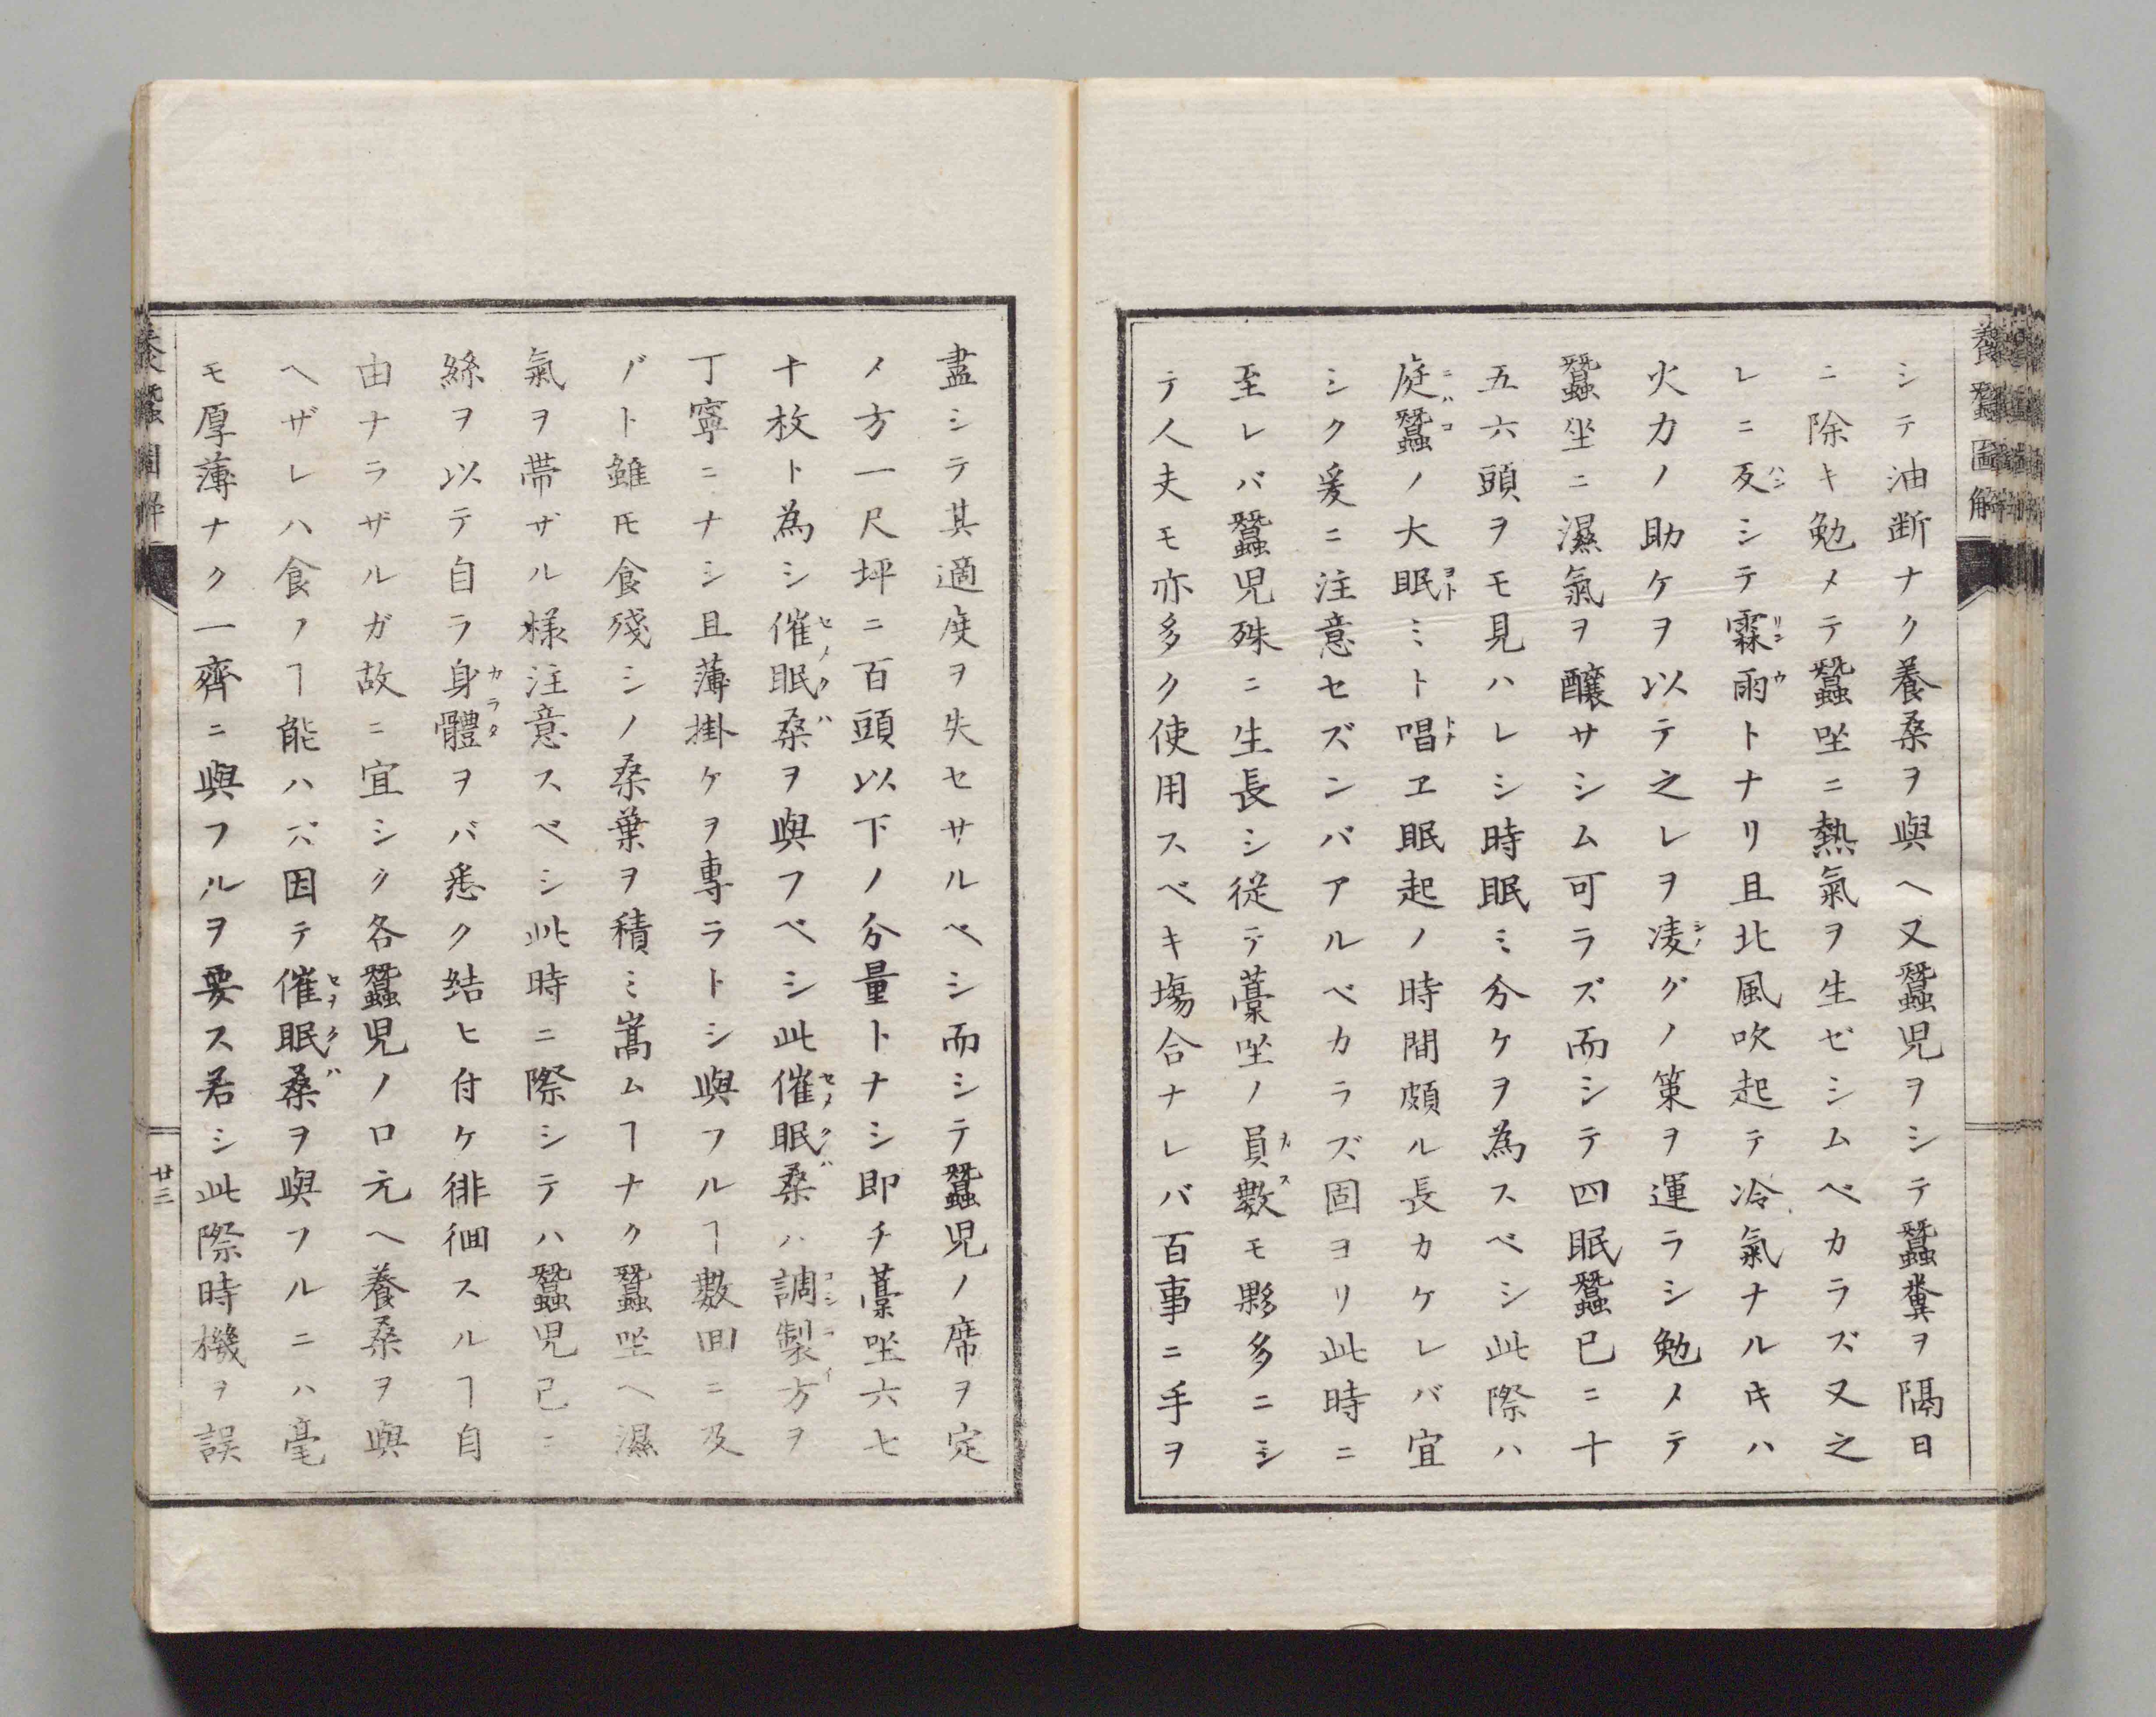 養蠶圖解
シテ油断ナク養桑ヲ與ヘ又蠶児ヲシテ蠶糞ヲ隔日
ニ除キ勉メテ蠶坐ニ熱氣ヲ生ゼシムベカラズ又之
レニ反シテ霖雨トナリ且北風吹起テ冷氣ナルキハ
火力ノ助ケヲ以テ之レヲ凌グノ策ヲ運ラシ勉メテ
蠶坐ニ濕氣ヲ釀サシム可ラズ而シテ四眠蠶已ニ十
五六頭ヲモ見ハレシ時眠ミ分ケヲ為スベシ此際ハ
庭蠶ノ大眠ミト唱ヱ眠起ノ時間頗ル長カケレバ宜
シク爰ニ注意セズンバアルベカラズ固ヨリ此時ニ
至レバ蠶児殊ニ生長シ従テ藁坐ノ員數モ夥多ニシ
テ人夫モ亦多ク使用スベキ塲合ナレバ百事ニ手ヲ
盡シテ其適度ヲ失セサルベシ而シテ蠶児ノ席ヲ定
メ方一尺坪ニ百頭以下ノ分量トナシ即チ藁坐六七
十枚ト為シ催眠桑ヲ與フベシ此催眠桑ハ調製方ヲ
丁寧ニナシ且薄掛ケヲ專ラトシ與フルヿ數回ニ及
ブト雖モ食殘シノ桑葉ヲ積ミ嵩ムヿナク蠶坐ヘ濕
氣ヲ帯ザル様注意スベシ此時ニ際シテハ蠶児已ニ
絲ヲ以テ自ラ身體ヲバ悉ク結ヒ付ケ徘徊スルヿ自
由ナラザルガ故ニ宜シク各蠶児ノ口元ヘ養桑ヲ與
ヘザレハ食フヿ能ハズ因テ催眠桑ヲ與フルニハ毫
モ厚薄ナク一齊ニ與フルヲ要ス若シ此際時機ヲ誤
養蠶圖解
廿三